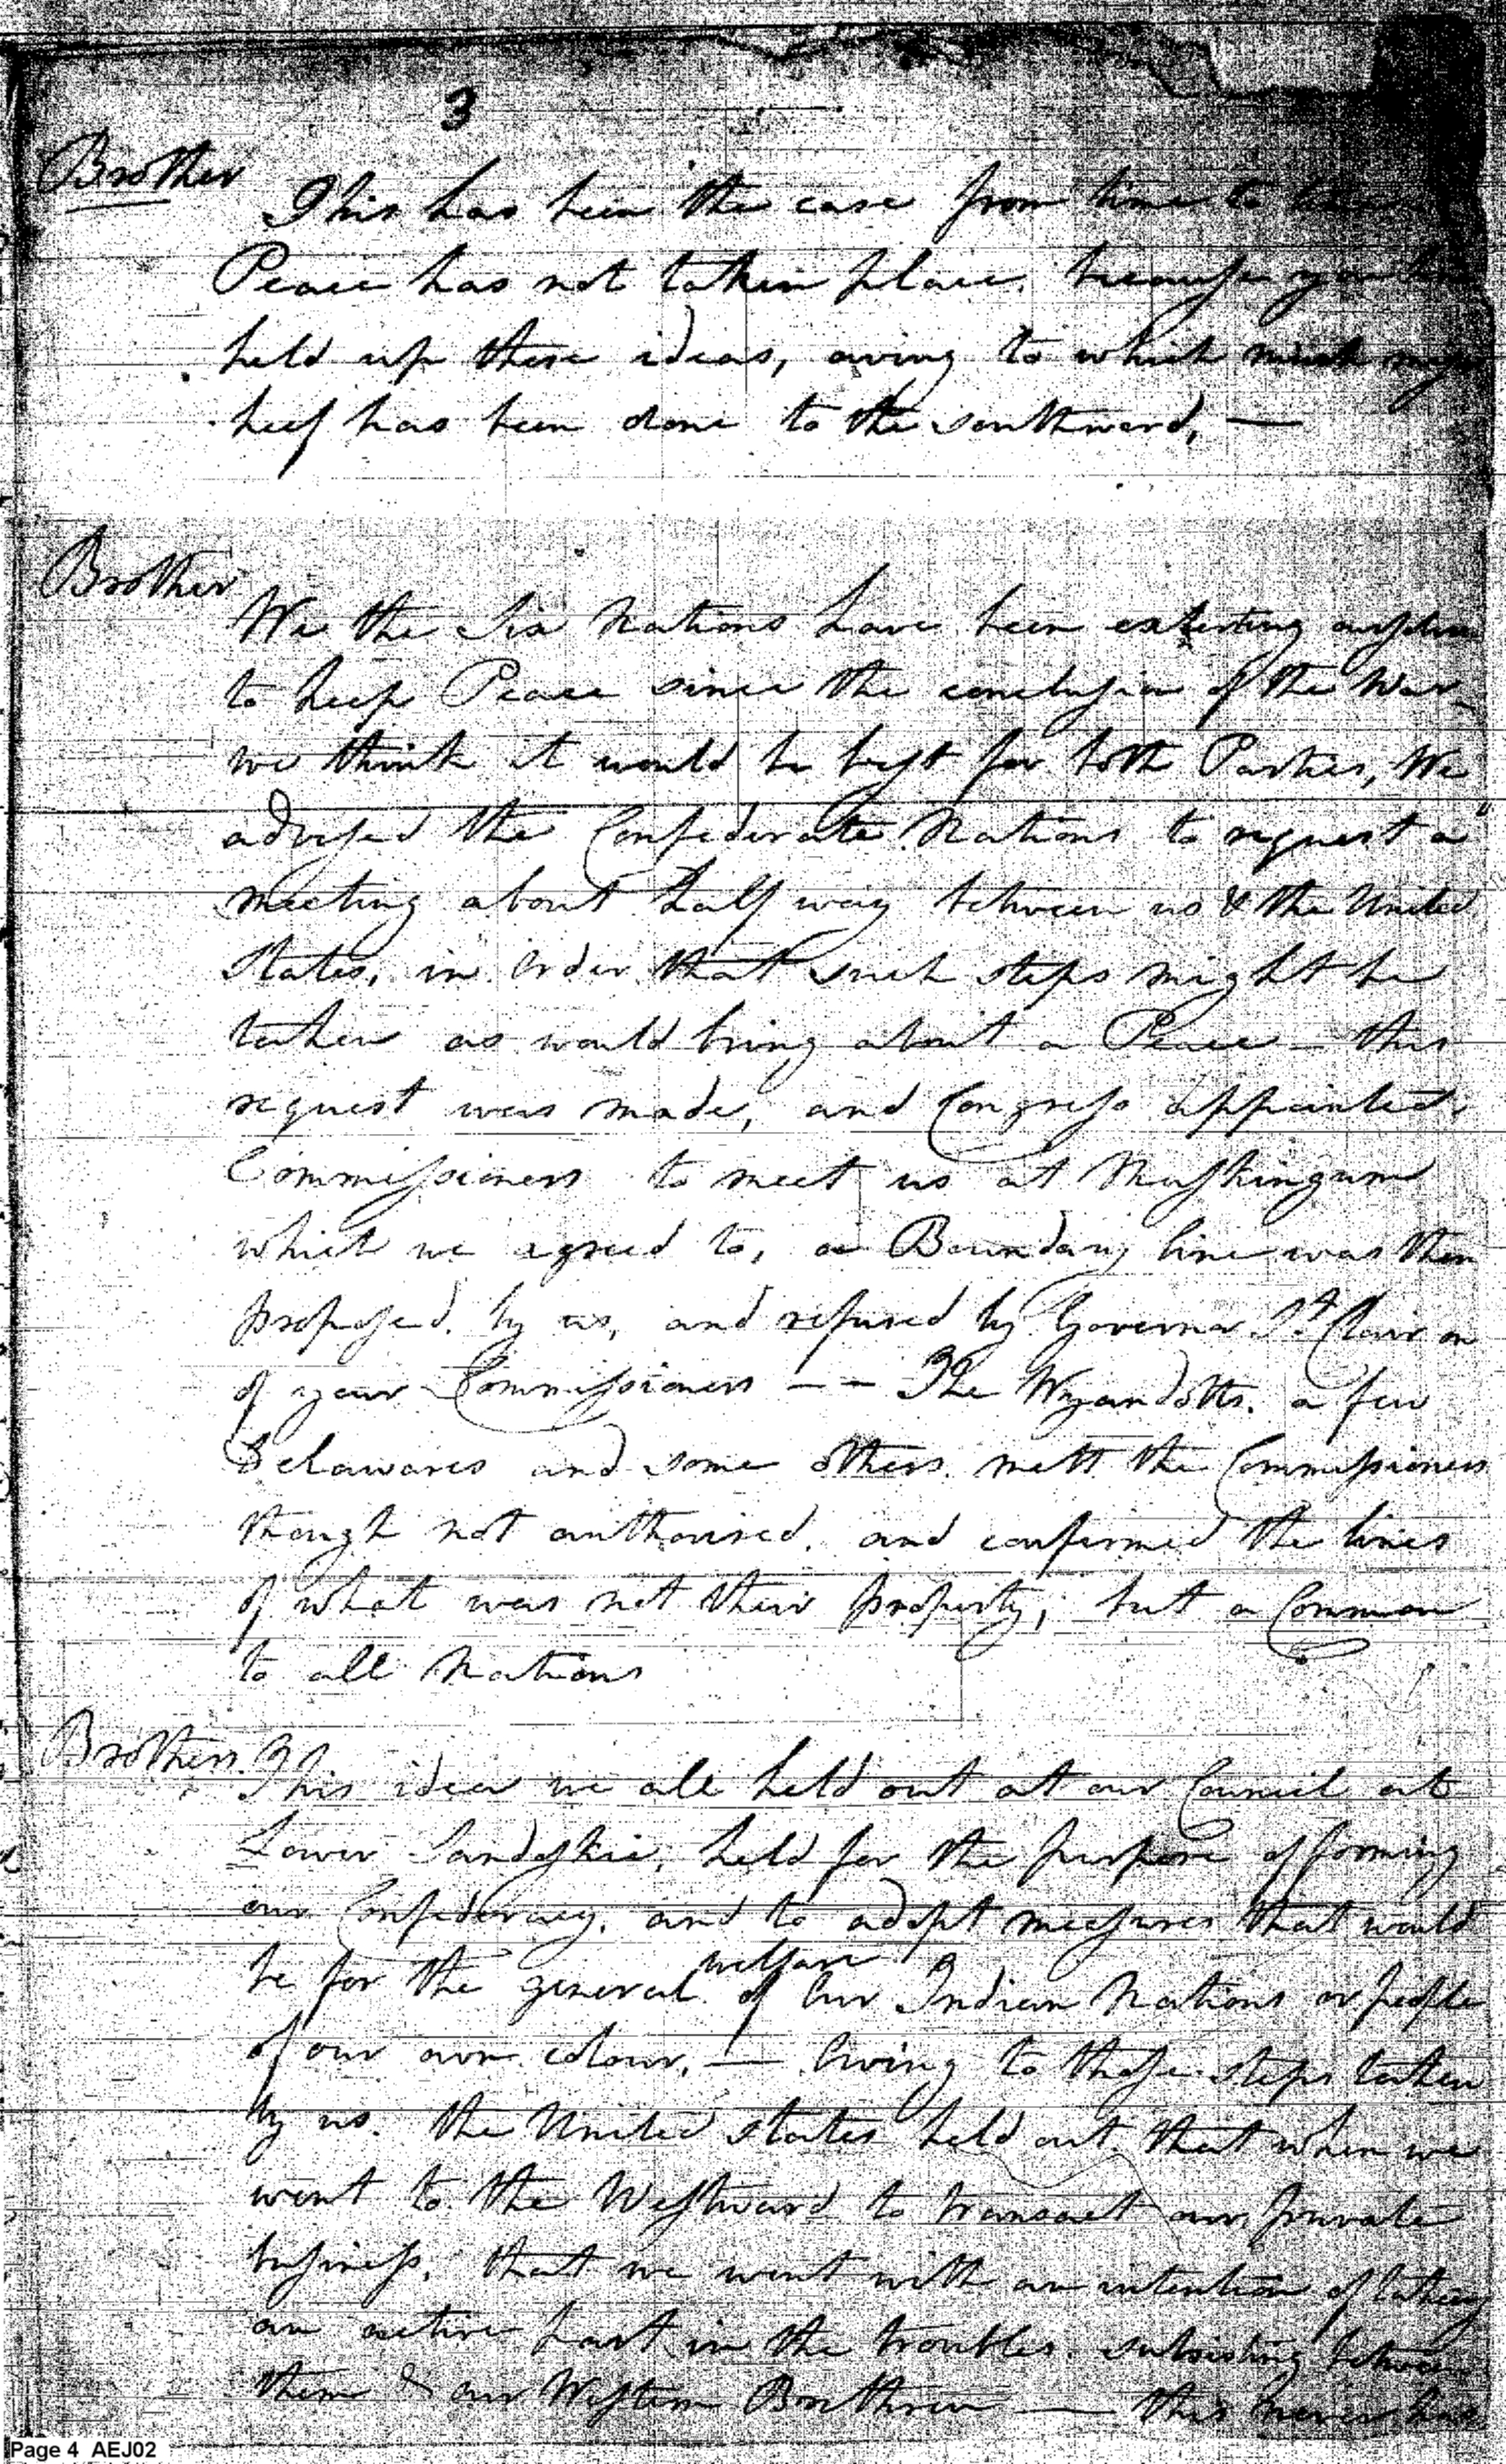 3
Brother
This has been the case from time to time
Peace has not taken place, because you
held up these ideas, owing to which much mis
heif has been done to the Southward, —
Brother
We the Six Nations have been exterting
to keep Peace since the conclusion of the War,
we think it would be best for both Parties, We
advised the Confederate Nations to request a
meeting about half way between us & the United
States, in Order that such steps might be
taken as would bring about a Peace — this
request was made, and Congress appointed
Commissioners to meet us at Muskingum
which we agreed to, a Boundary line was then
proposed by us, and refused by Governor St Clair on
of your Commissioners — — The Wyandotts, a few
Delawares and some others mett the Commissioners
though not authorised, and confirmed the lines
of what was not their property, but a Common
to all Nations
Brothers.
This idea we all held out at our Council at
Lower Sandoskie, held for the purpose of forming
our Confederacy, and to adopt measures that would
be for the general welfare of our Indian Nations or people
of our own colour, — Owing to those steps taken
by us, the United States held out, that when we
went to the Westward to transact our private
business, that we went with an intention of taking
an active part in the troubles subsisting between
them & our Western Breethren — this never
Page 4 AEJ02